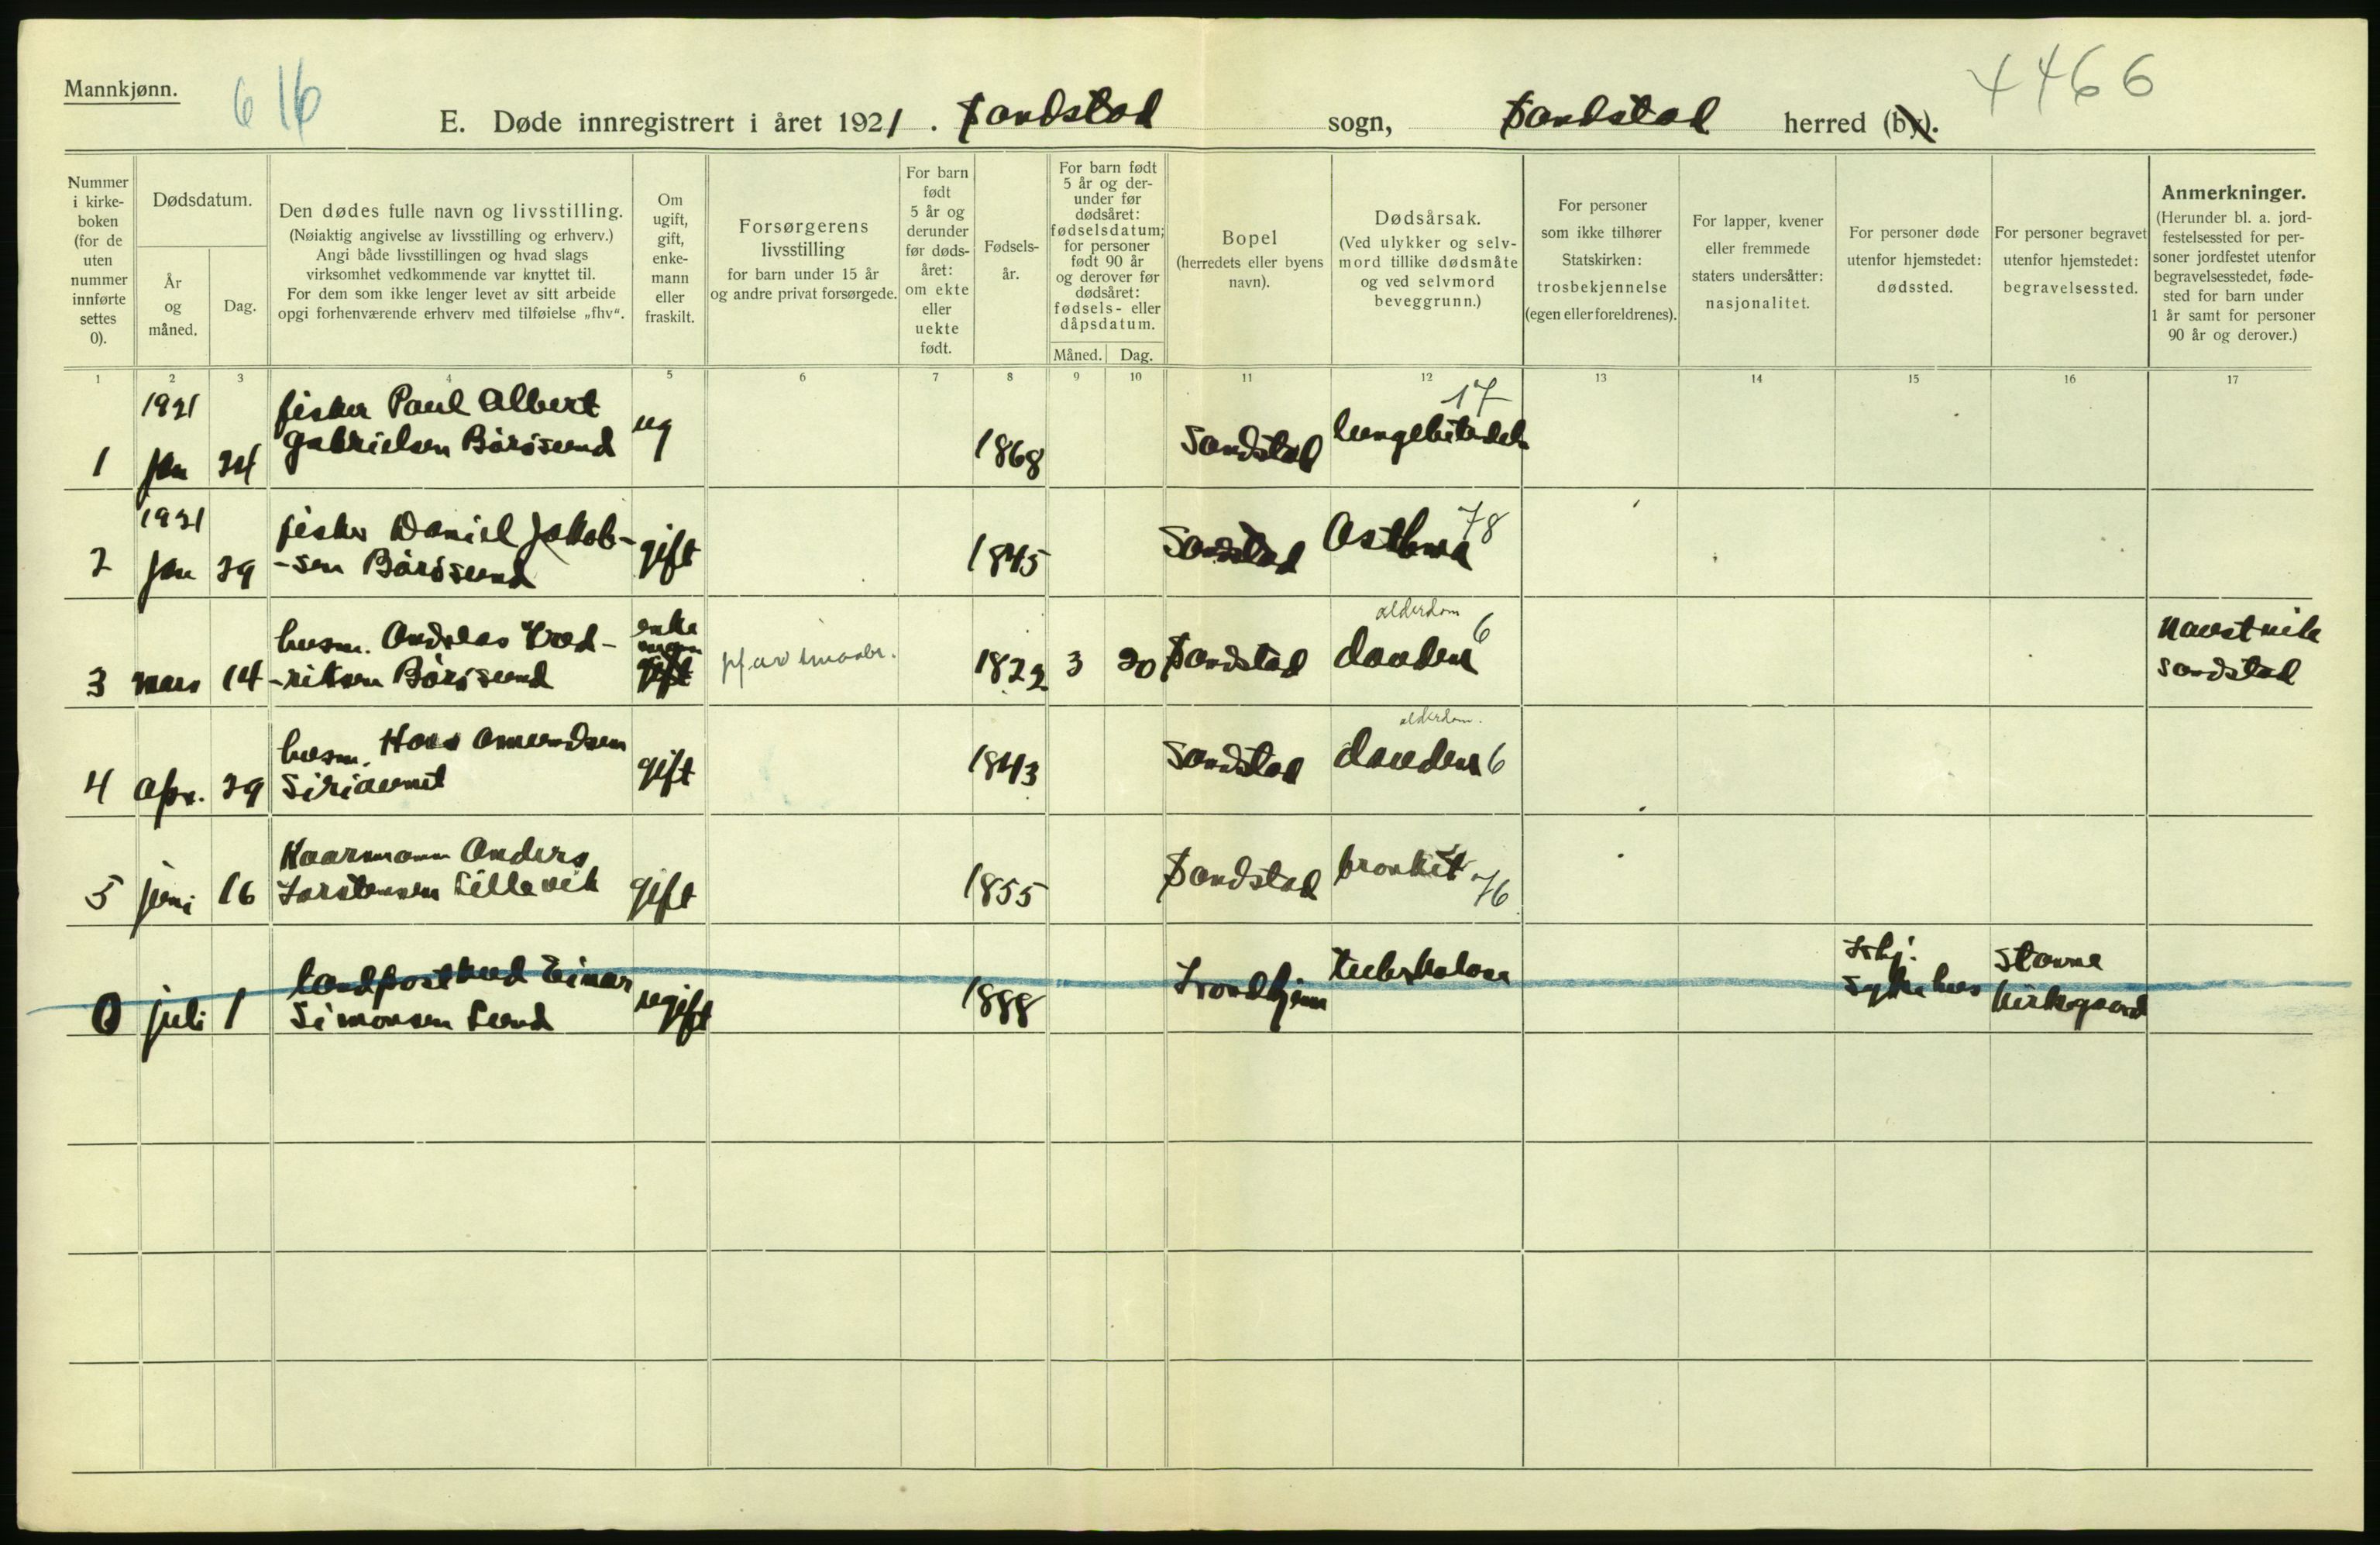 Mannkjønn.
6 16
4466
E. Døde innregistrert i året 1921. Sandstad sogn, Sandstad herred (by).
Nummer i kirkeboken (for de uten nummer innførte settes 0).
Dødsdatum.
År og måned.
Dag.
Den dødes fulle navn og livsstilling.
(Nøiaktig angivelse av livsstilling og erhverv.)
Angi både livsstillingen og hvad slags
virksomhet vedkommende var knyttet til.
For dem som ikke lenger levet av sitt arbeide
opgi forhenværende erhverv med tilføielse „fhv“.
Om ugift, gift, enkemann eller fraskilt.
Forsørgerens livsstilling
for barn under 15 år
og andre privat forsørgede.
For barn født 5 år og derunder før dødsåret: om ekte eller uekte født.
Fødselsår.
For barn født 5 år og derunder før dødsåret: fødselsdatum; for personer født 90 år og derover før dødsåret: fødsels- eller dåpsdatum.
Måned. Dag.
Bopel
(herredets eller byens navn).
Dødsårsak.
(Ved ulykker og selvmord tillike dødsmåte og ved selvmord beveggrunn.)
For personer som ikke tilhører Statskirken: trosbekjennelse (egen eller foreldrenes).
For lapper, kvener eller fremmede staters undersåtter: nasjonalitet.
For personer døde utenfor hjemstedet: dødssted.
For personer begravet utenfor hjemstedet: begravelsessted.
Anmerkninger.
(Herunder bl. a. jordfestelsessted for personer jordfestet utenfor begravelsesstedet, fødested for barn under 1 år samt for personer 90 år og derover.)
1 2 3 4 5 6 7 8 9 10 11 12 13 14 15 16 17
1 1921 Jan 24 fisker Paul Albert Gabrielsen Børøsund ug 1868 Sandstad lungebetændels 17
2 1921 Jan 29 fisker Daniel Jakob-sen Børøsund gift 1845 Sandstad Asthma 78
3 mars 14 husm. Andreas Fred-riksen Børøsund enke gift 1822 3 20 Sandstad alderdom 6 Sandstad
4 Apr. 29 husm. Hans Amundsen gift 1843 Sandstad alderdom. 6
5 juni 16 Kaarmann Anders Torstensen Lillevik gift 1855 Sandstad bronkit 76
0 juli 1 landpostbud Einar Simonsen Lund ugift 1888 Trondhjem tuberkulose Trhj. Sykehus Stavne Kirkegaard